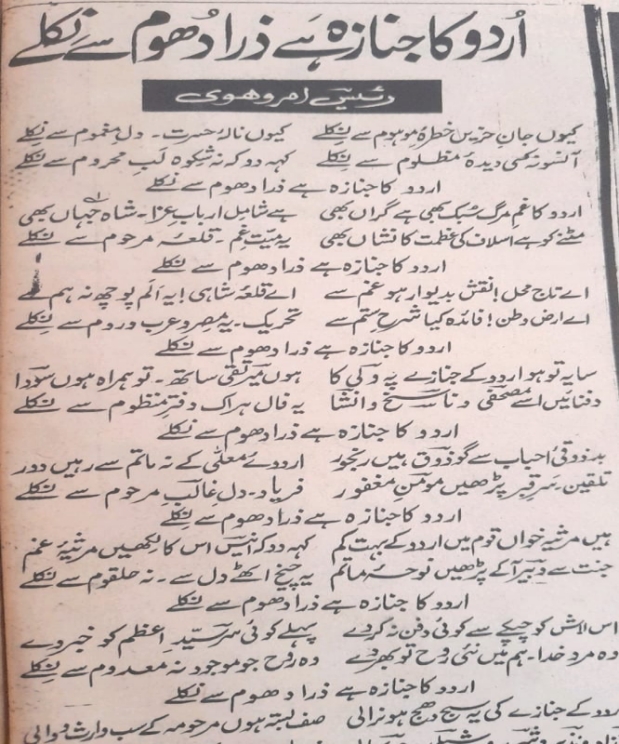 اُردو کا جنازہ ہے ذرا دُھوم سے نکلے
رئیس امروھوی
کیوں جانِ حزیں خطرۂ موہوم سے نکلے کیوں نالۂ حسرت۔ دلِ مغموم سے نکلے
آنسو نہ کسی دیدۂ مظلوم سے نکلے کہہ دو کہ نہ شکوہ لبِ محروم سے نکلے
اردو کا جنازہ ہے ذرا دھوم سے نکلے
اردو کا غمِ مرگ سُبک بھی ہے گراں بھی ہے شامل اربابِ عزا۔ شاہ جہاں بھی
مٹنے کو ہے اسلاف کی عظمت کا نشاں بھی یہ میّتِ غم۔ قلعۂ مرحوم سے نکلے
اردو کا جنازہ ہے ذرا دھوم سے نکلے
اے تاج محل! نقش بدیوار ہو غم سے اے قلعۂ شاہی! یہ اَلم پوچھ نہ ہم سے
اے ارضِ وطن! فائدہ کیا شرحِ ستم سے تحریک۔ یہ مصر و عرب و روم سے نکلے
اردو کا جنازہ ہے ذرا دھوم سے نکلے
سایہ تو ہو اردو کے جنازے پہ وَلی کا ہوں میرتقی ساتھ۔ تو ہمراہ ہوں سودا
دفنائیں اسے مصحفی و ناسخ و انشا یہ فال ہر اک دفترِ منظوم سے نکلے
اردو کا جنازہ ہے ذرا دھوم سے نکلے
بدذوقیٔ احباب سے گو ذوق ہیں رنجور اردوئے معلّٰی کے نہ ماتم سے رہیں دور
تلقین سرِ قبر پڑھیں مومنِ مغفور فریاد۔ دلِ غالبِ مرحوم سے نکلے
اردو کا جنازہ ہے ذرا دھوم سے نکلے
ہیں مرثیہ خواں قوم میں اردو کے بہت کم کہہ دو کہ انیس اس کا لکھیں مرثیۂ غم
جنت سے دبیر آ کے پڑھیں نوحۂ ماتم یہ چیخ اٹھے دل سے۔ نہ حلقوم سے نکلے
اردو کا جنازہ ہے ذرا دھوم سے نکلے
اس لاش کو چپکے سے کوئی دفن نہ کردے پہلے کوئی سرسیّدِ اعظم کو خبر دے
وہ مردِ خدا۔ ہم میں نئی روح تو بھر دے وہ روح جو موجود نہ معدوم سے نکلے
اردو کا جنازہ ہے ذرا دھوم سے نکلے
ردو کے جنازے کی یہ سج دھج ہو نرالی صف بستہ ہوں مرحومہ کے سب وارث و والی